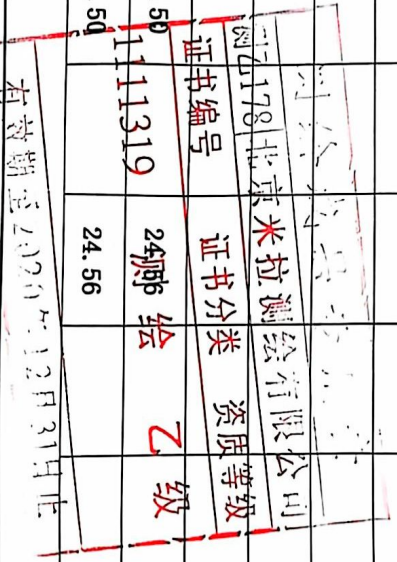 测乙178北京米拉测绘有限公司
证书编号 证书分类 资质等级
1111319 测绘 乙级
50 24.56
50 24.56
有效期至2020年12月31日止